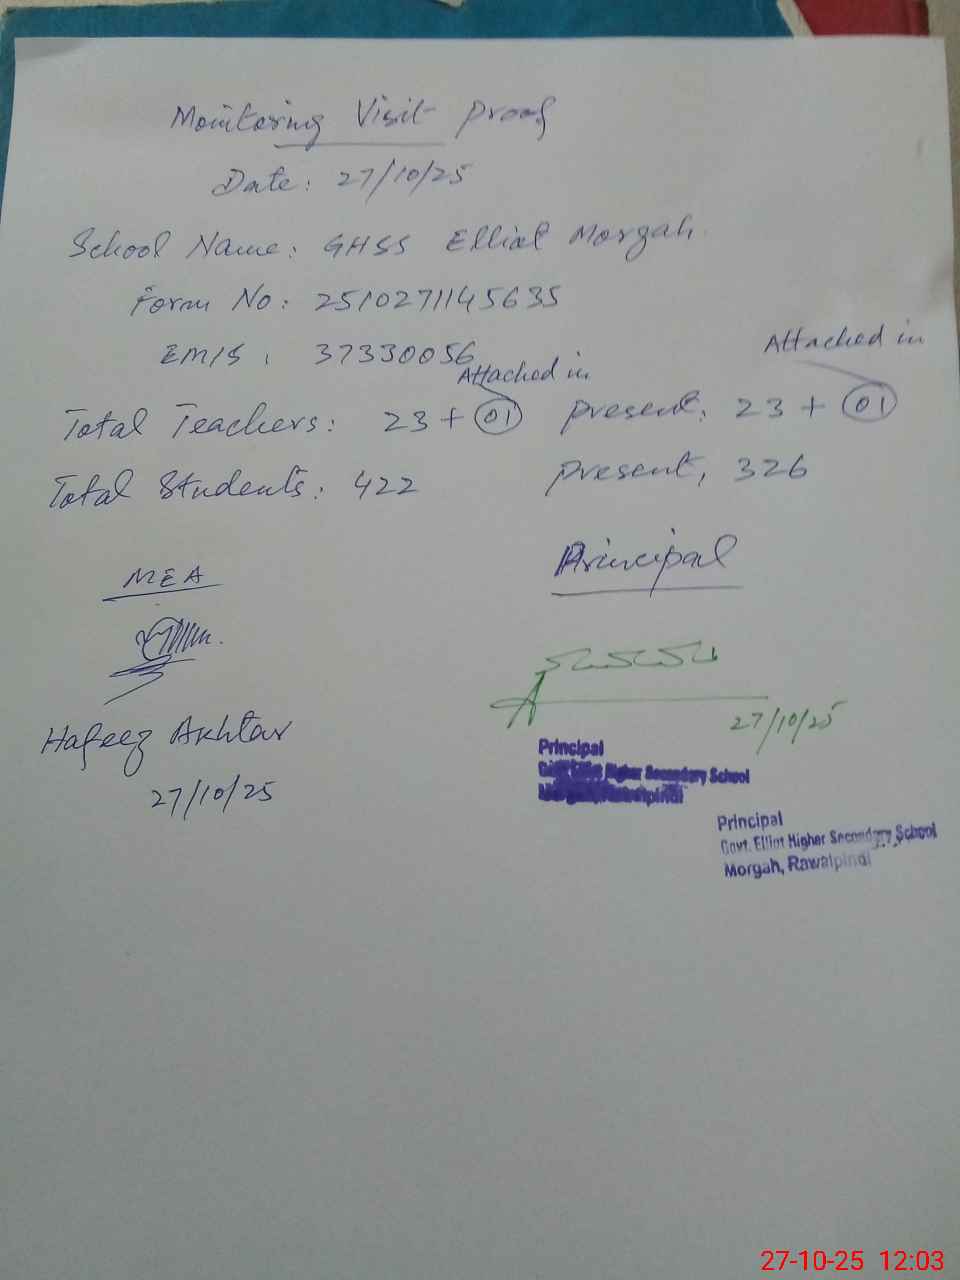 Monitoring Visit Proof
Date: 27/10/25
School Name: GHSS Elliot Morgah.
Form No: 2510271145635
EMIS: 37330056
Attached in
Attached in
Total Teachers: 23 + 01 Present: 23 + 01
Total Students: 422 Present: 326
MEA
Principal
Hafeez Akhtar
27/10/25
27/10/25
Principal
Govt. Elliot Higher Secondary School
Morgah, Rawalpindi
Principal
Govt. Elliot Higher Secondary School
Morgah, Rawalpindi
27-10-25 12:03